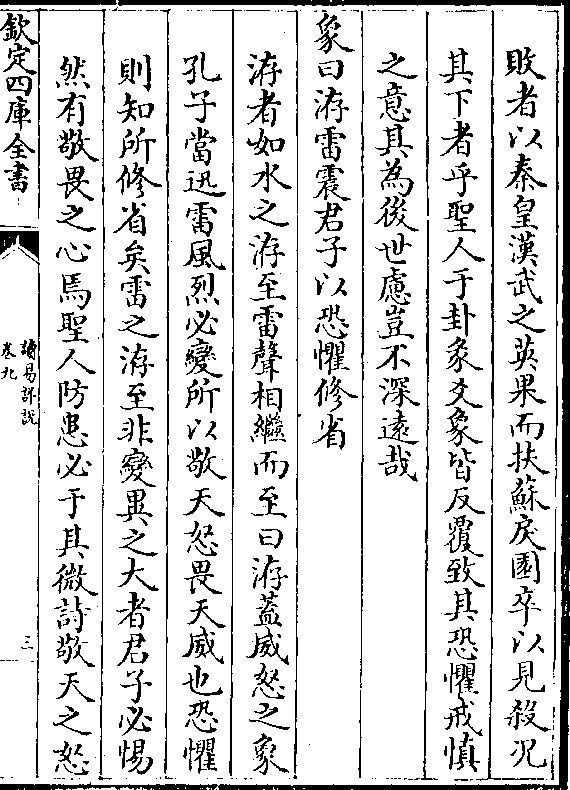 敗者以秦皇漢武之英果而扶蘇戾園卒以見殺况
其下者乎聖人于卦象爻象皆反覆致其恐懼戒慎
之意其為後世慮豈不深遠哉
象曰洊雷震君子以恐懼修省
洊者如水之洊至雷聲相繼而至曰洊蓋威怒之象
孔子當迅雷風烈必變所以敬天怒畏天威也恐懼
則知所修省矣雷之洊至非變異之大者君子必惕
然有敬畏之心焉聖人防患必于其微詩敬天之怒
欽定四庫全書
讀易詳説
卷九
三